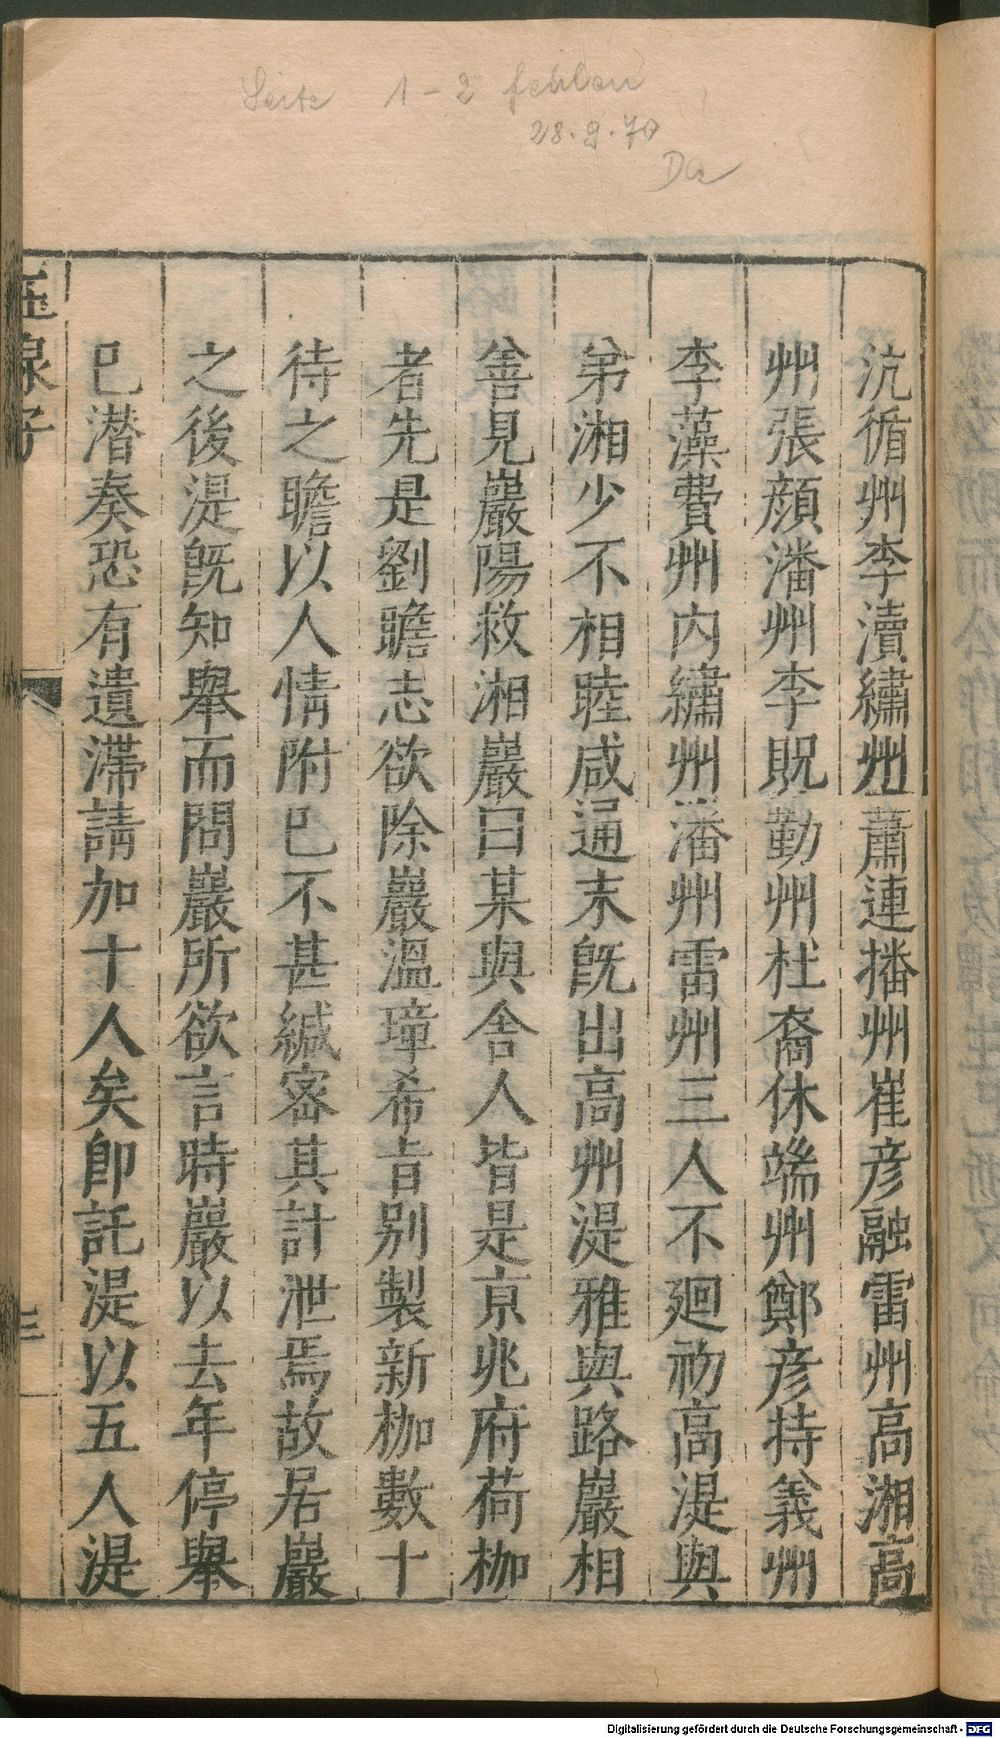 Seite 1-2 fehlen
28.9.70
Da
沆循州李瀆繡州蕭遘播州崔彥融雷州高湘高
州張顔潘州李貺勤州杜裔休端州鄭彥持義州
李藻費州内繡州潘州雷州三人不廻初高湜與
弟湘少不相睦咸通末旣出高州湜雅與路巖相
善見巖陽救湘巖曰某與舍人皆是京兆府荷枷
者先是劉瞻志欲除巖溫璋希旨别製新枷數十
待之瞻以人情附已不甚緘宻其計泄焉故居巖
之後湜旣知舉而問巖所欲言時巖以去年停舉
已潜奏恐有遺滯請加十人矣卽託湜以五人湜
玉泉子
三
Digitalisierung gefördert durch die Deutsche Forschungsgemeinschaft - DFG